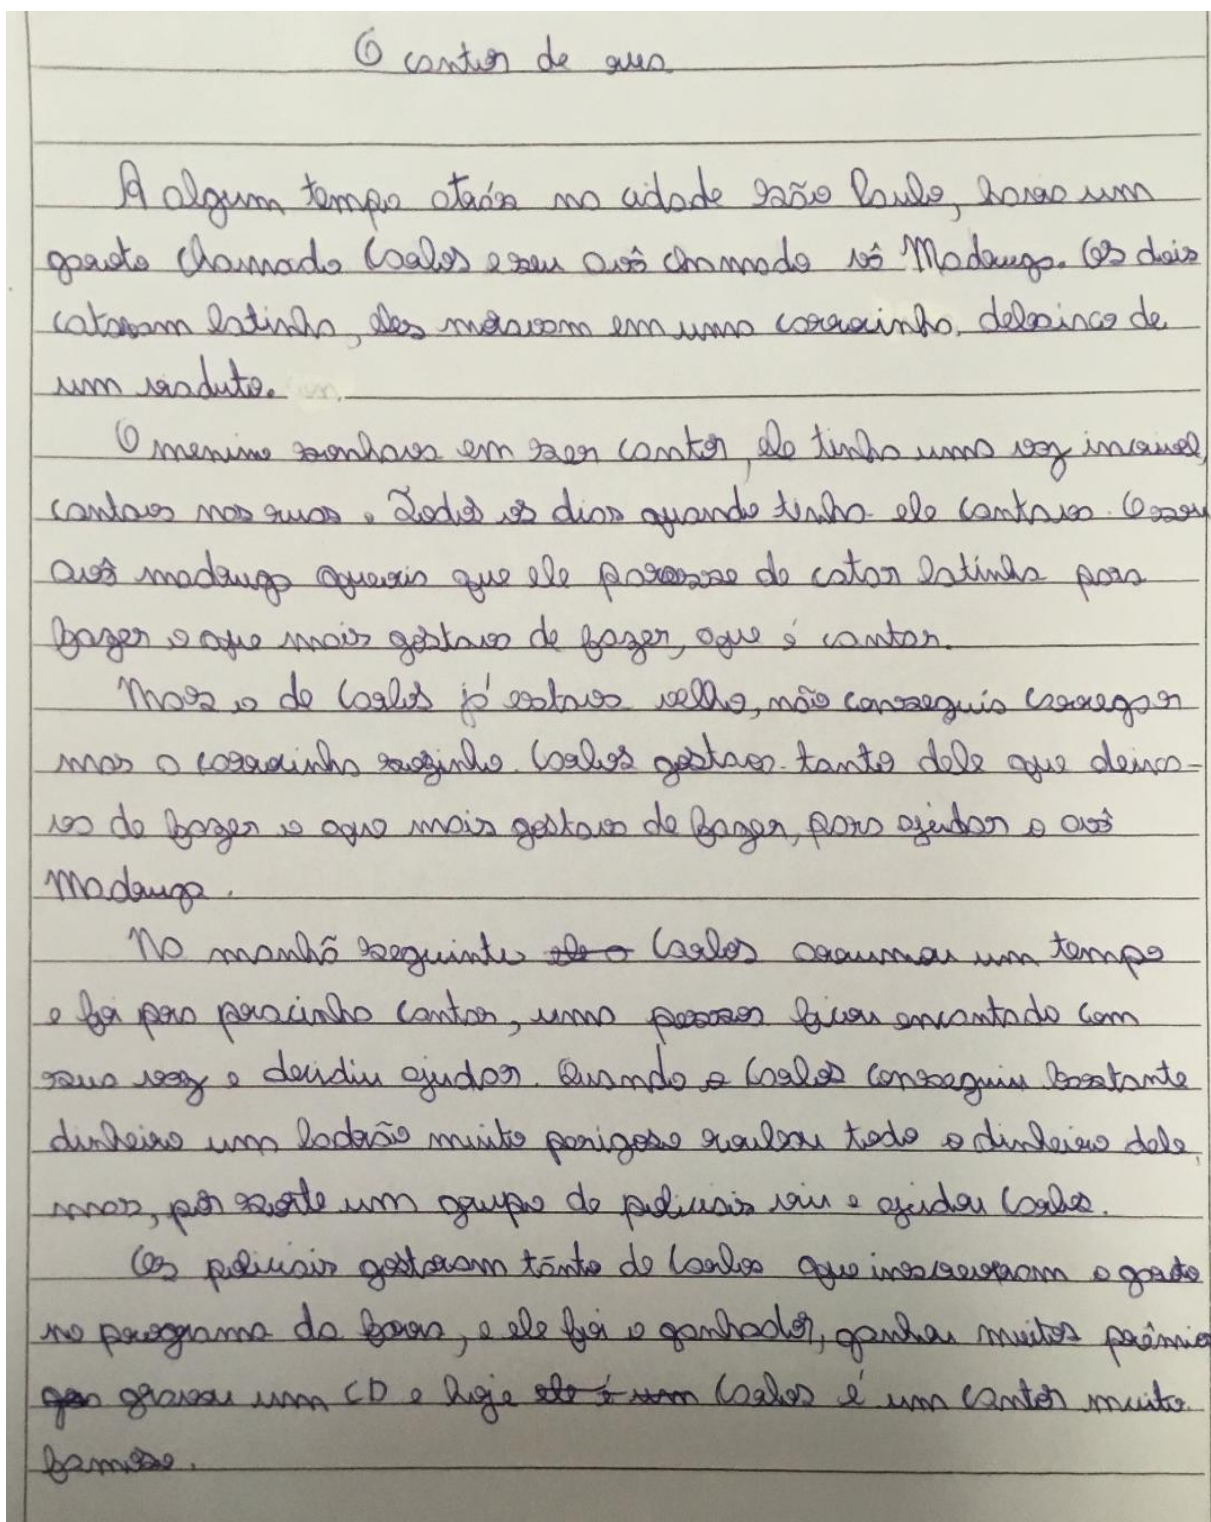 O cantor de rua
A algum tempo atrás na cidade São Paulo, havia um
garoto chamado Carlos e seu avô chamado vô Madruga. Os dois
catavam latinha, eles moravam em uma carrainha, debaixo de
um viaduto.
O menino sonhava em ser cantor, ele tinha uma voz incrivel,
cantava nas ruas. Todos os dias quando tinha ele cantava. O seu
avô madruga queria que ele parasse de catar latinha para
fazer o que mais gostava de fazer, que é cantar.
Mas o de Carlos já estava velho, não conseguia carregar
mas a carrainha sozinho. Carlos gostava tanto dele que deixa-
va de fazer o que mais gostava de fazer, para ajudar o avô
Madruga.
Na manhã seguinte ele o Carlos arrumou um tempo
e foi pra pracinha cantar, uma pessoa ficou encantada com
sua voz e decidiu ajudar. Quando o Carlos conseguiu bastante
dinheiro um ladrão muito perigoso roubou todo o dinheiro dele,
mas, por sorte um grupo de policiais viu e ajudou Carlos.
Os policiais gostaram tanto de Carlos que inscreveram o garoto
no programa do faro, e ele foi o ganhador, ganhou muitos prêmio
gravou um CD e hoje ele é um Carlos é um cantor muito
famoso.